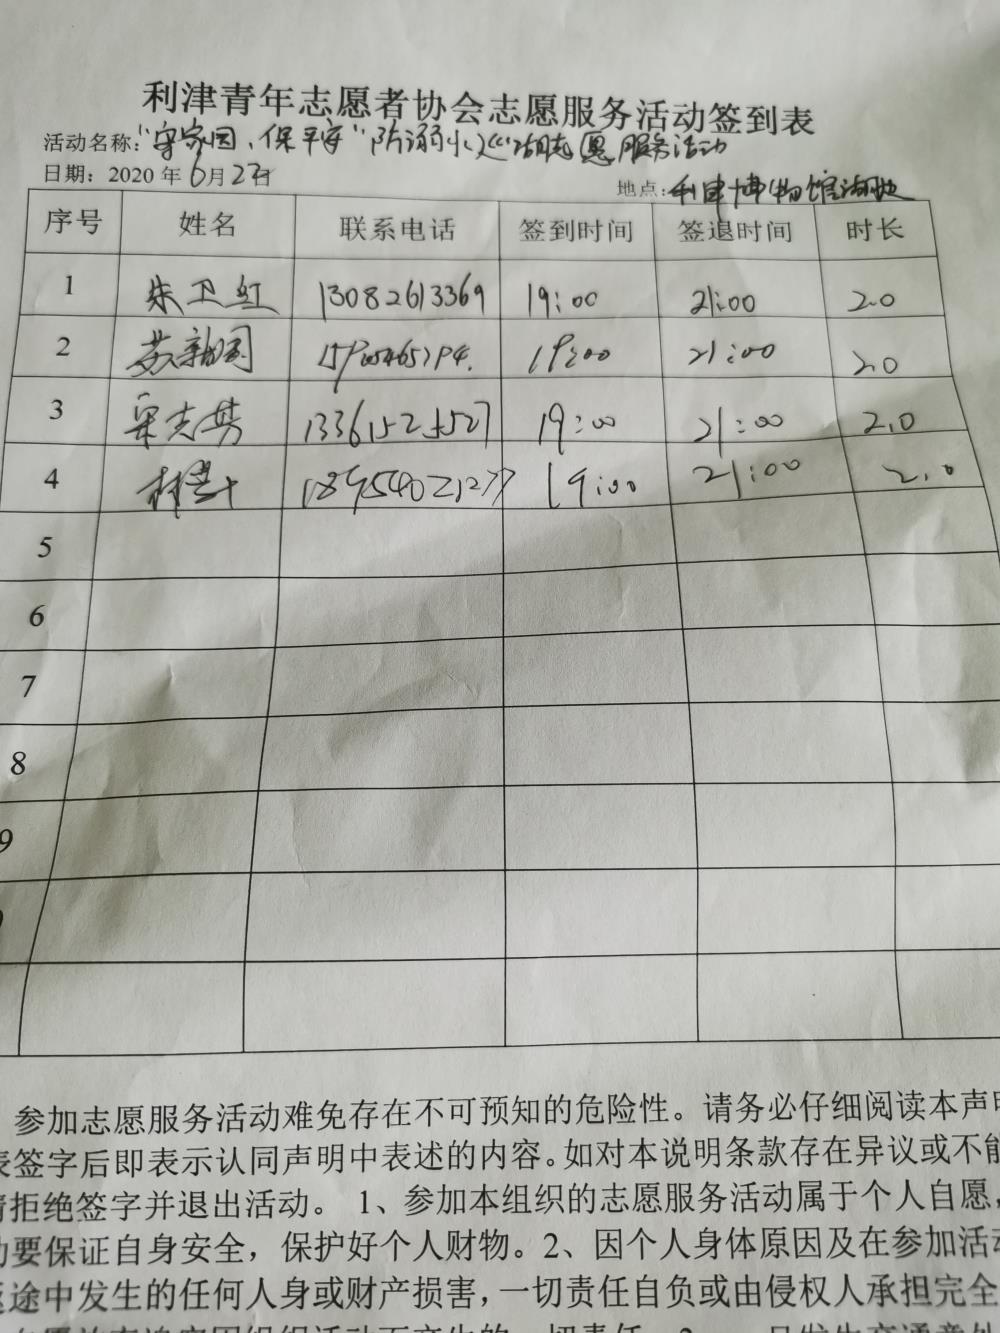 利津青年志愿者协会志愿服务活动签到表
活动名称："守家园、保平安"防溺水巡湖志愿服务活动
日期：2020年6月22日 地点：利津博物馆湖边
序号 姓名 联系电话 签到时间 签退时间 时长
1 朱卫红 13082613369 19:00 21:00 2.0
2 苏新国 19:00 21:00 2.0
3 19:00 21:00 2.0
4 19:00 21:00 2.0
5
6
7
8
9
参加志愿服务活动难免存在不可预知的危险性。请务必仔细阅读本声明
表签字后即表示认同声明中表述的内容。如对本说明条款存在异议或不能
请拒绝签字并退出活动。 1、参加本组织的志愿服务活动属于个人自愿，
动要保证自身安全，保护好个人财物。2、因个人身体原因及在参加活动
返途中发生的任何人身或财产损害，一切责任自负或由侵权人承担完全